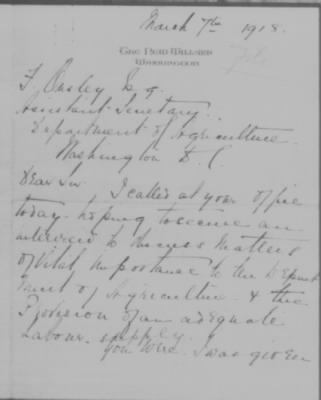 March 7th 1918.
THE NEW WILLARD
WASHINGTON
F Ousley Esq.
Assistant Secretary.
Department of Agriculture.
Washington D. C.
Dear Sir I called at your office
today hoping to secure an
interview to discuss matters
of vital importance to the Depart
ment of Agriculture & the
Provision of an adequate
Labour supply.
you were. I was given